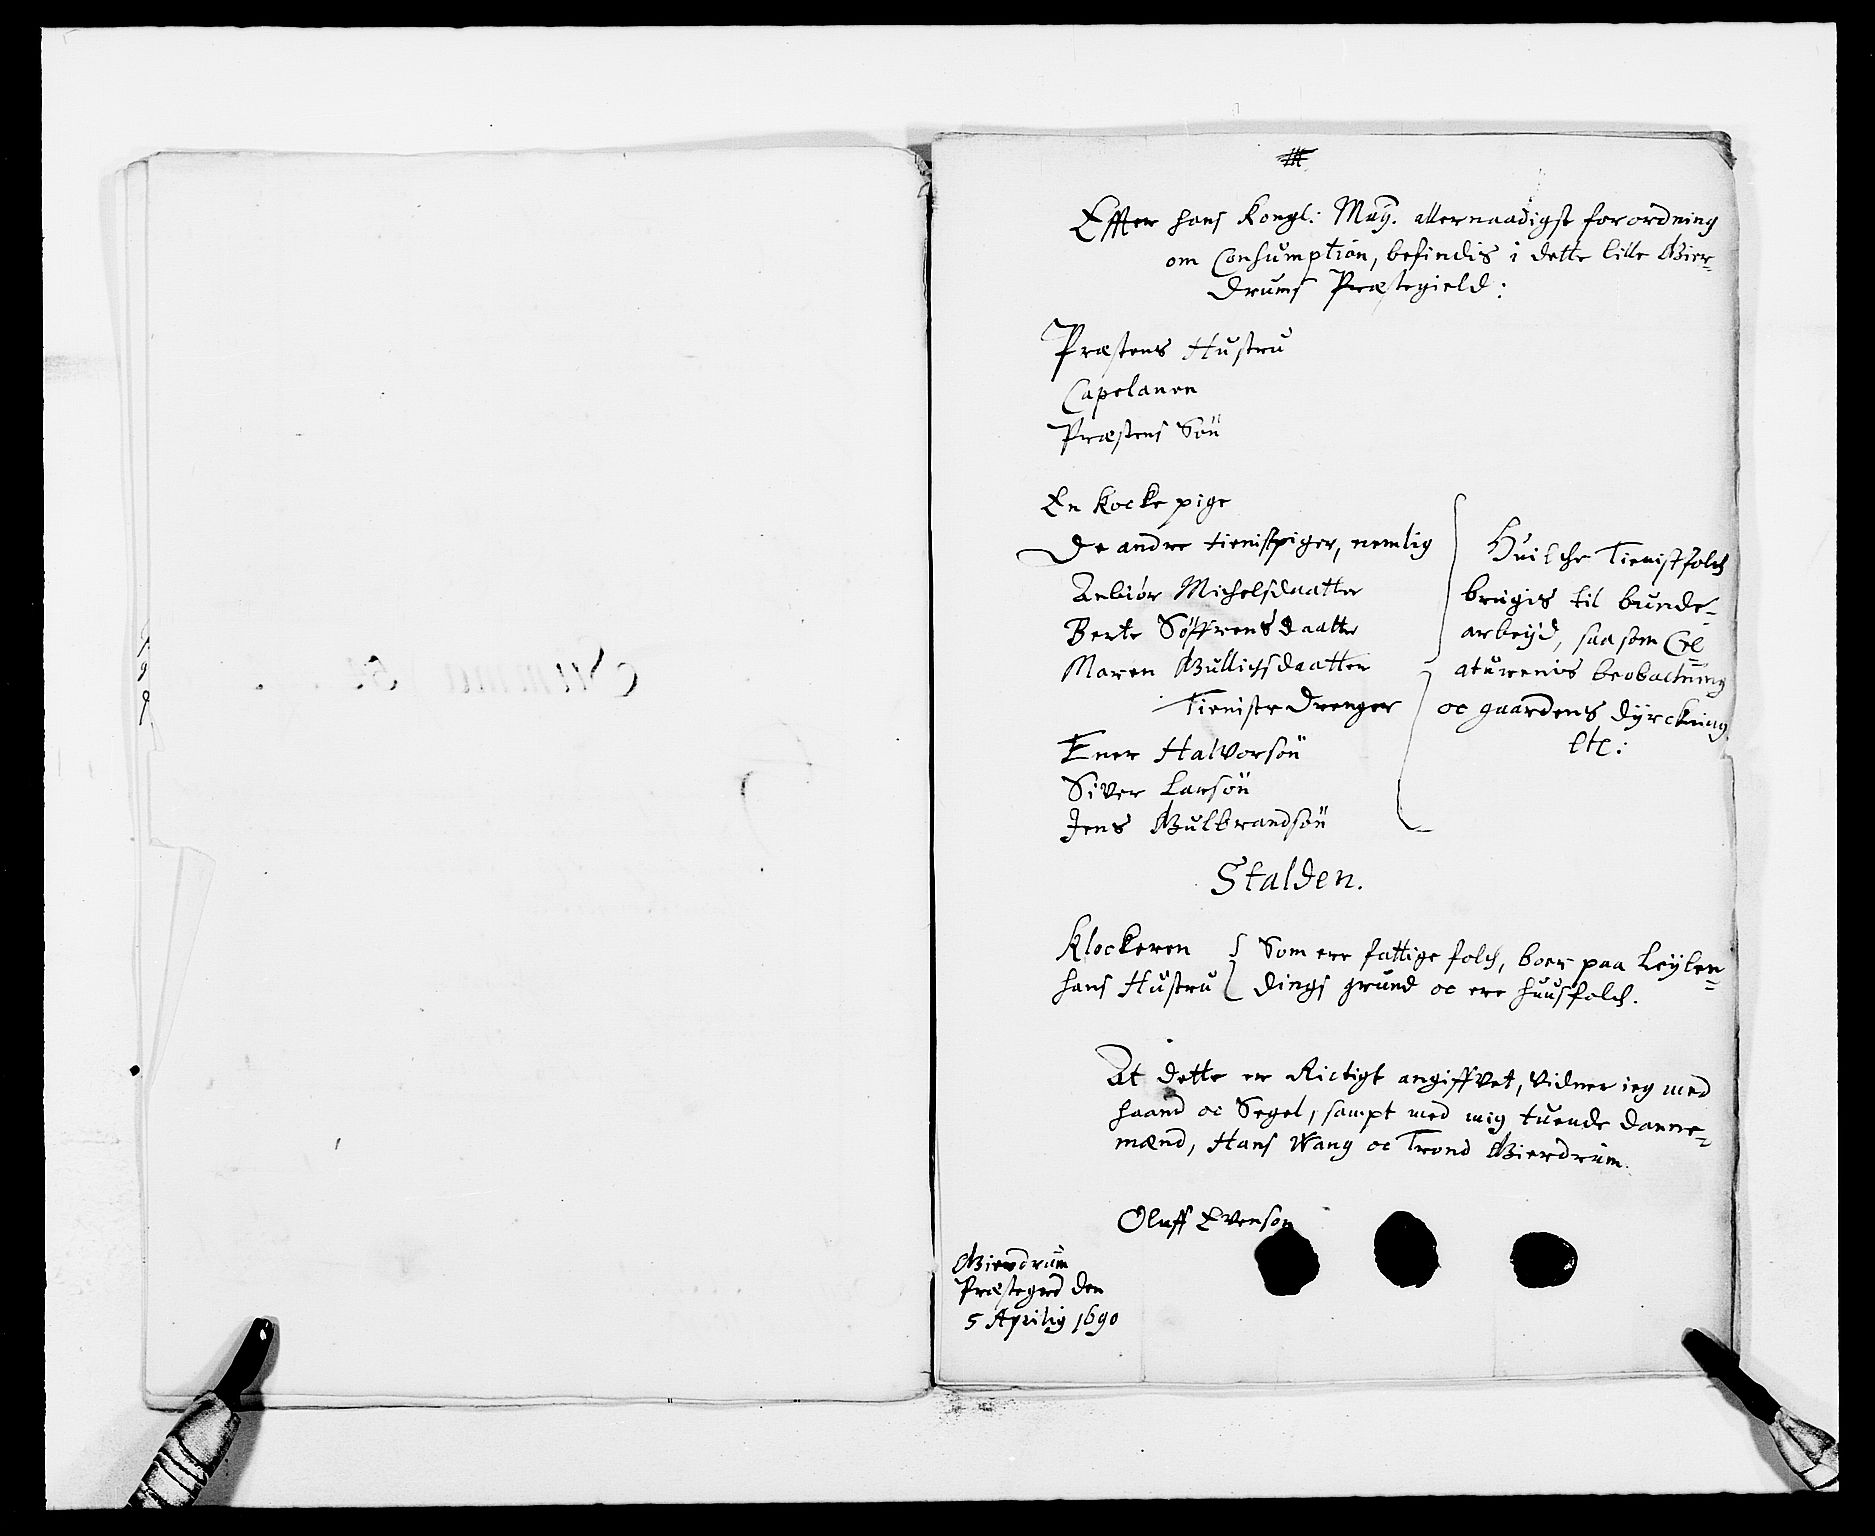 Effter hans Kongl: May. allernaadigst forordning
om Consumption, befindis i dette lille Gier-
drums Præstegield:
Præstens Hustru
Capelanen
Præstens Søn
En Kocke pige
De andre tienistpiger, nemlig
Anbiör Michelsdaatter
Berte Søffrensdaatter
Maren Gullichsdaatter
Tieniste Drenger
Ener Halvorsøn
Siver Larsøn
Jens Gulbrandsøn
Huilche Tienistfolch
brugis til bunde-
arbeyd, saa som Cre
aturenis beobactning
oc gaardens dyrckning
etc:
Stalden.
Klockeren
hans Hustru
Som ere fattige folch, boer paa Leylen-
dings grund oc ere huusfolch.
At dette er Rictigt angiffvet, vidner ieg med
haand oc Segel, sampt med mig tuende danne-
mænd, Hans Wang oc Trond Gierdrum.
Oluff Evenson
Gierdrum
Præstegrd den
5 Aprilis 1690